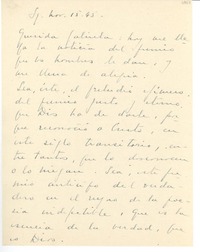 Sg. Nov. 15.45.
Querida Gabriela: hoy me lle
ga la noticia del premio
que los hombres le dan, y
me lleno de alegría.
Sea, éste, el preludio efímero
del premio justo y eterno,
que Dios ha de darle, por
que reconoció a Cristo, en
este siglo transitorio, en
tre tantos, que lo desconocen
o lo niegan. Sea, este pre
mio anticipo del verda
dero en el reino de la poe
sía indefectible, que es la
esencia de la verdad, que
es Dios.